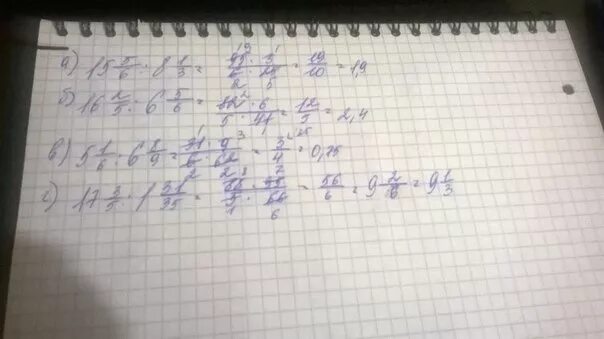 а) 15 5/6 : 8 1/3 = 95 · 3 / 6 · 25 = 19/10 = 1,9
б) 16 2/5 : 6 5/6 = 82 · 6 / 5 · 41 = 12/5 = 2,4
в) 5 1/6 : 6 8/9 = 31 · 9 / 6 · 62 = 3/4 = 0,75
г) 17 3/5 : 1 31/35 = 88 · 35 / 5 · 66 = 56/6 = 9 2/6 = 9 1/3